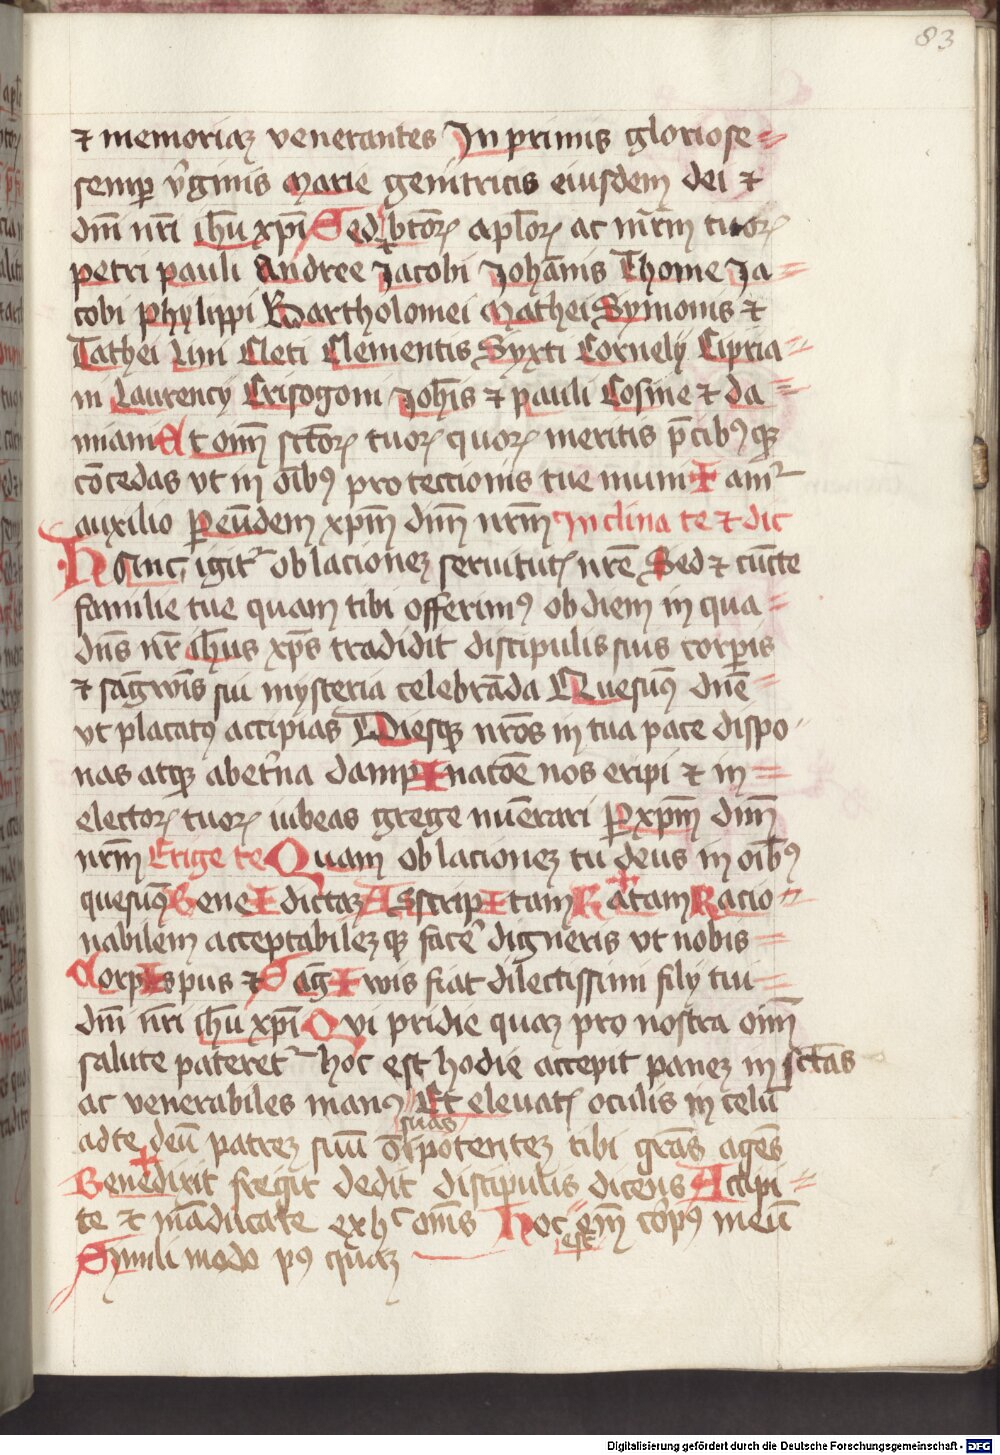 83
⁊ memoriaꝫ venerantes In primis gloriose
semp v̾ginis Marie genitricis eiusdem dei ⁊
dm̄ nr̄i ihū xp̄i Sed ⁊ btōꝝ aplōꝝ ac mr̄m tuoꝝ
petri pauli Andree Jacobi Johānis Thome Ja
cobi Phylippi Bartholomei Mathei Symonis ⁊
Tathei Lini Cleti Clementis Syxti Cornelÿ Cipria
ni Laurency Crisogoni Joh̄is ⁊ pauli Cosme ⁊ da
miani Et oīm sctōꝝ tuoꝝ quoꝝ meritis p̄cibꝰqꝫ
cōcedas vt in oībꝰ protectionis tue muniamr̄
auxilio Per eūdem xpm̄ dnm̄ nrm̄ Inclina te ⁊ dic
Hanc igit̾ oblacioneꝫ seruitutꝭ nr̄e Sed ⁊ cūcte
familie tue quam tibi offerimꝰ ob diem in qua
dn̄s nr̄ ihūs xp̄s tradidit discipulis suis corꝑis
⁊ sāgwīs sui mysteria celebrāda Quesumꝰ dn̄e
vt placatꝰ accipias Diesqꝫ nrōs in tua pace dispo
nas atqꝫ ab et̾na dampnatōe nos eripi ⁊ in
electoꝝ tuoꝝ iubeas grege nūerari P xpm̄ dnm̄
nrm̄ Erige te Quam oblacioneꝫ tu deus in oībꝰ
quesumꝰ Bene✠dictaꝫ Asscrip✠tam Ra✠tam Racio
nabilem acceptabileꝫqꝫ face̾ digneris vt nobis
Corp✠pus ⁊ Sāg✠wis fiat dilectissimi filÿ tui
dm̄ nr̄i ihū xp̄i Qvi pridie quaꝫ pro nostra oīm
salute pateret̾ hoc est hodie accepit paneꝫ in sctās
ac venerabiles manꝰ suas Et eleuatꝭ oculis in celū
ad te deū patreꝫ suū oīpotenteꝫ tibi grās agēs
Benedixit fregit dedit discipulis dicens Accipi
te ⁊ māducate ex hͨ om̄s Hoc est em̄ corpꝰ meū
Simili modo pꝰ quaꝫ
Digitalisierung gefördert durch die Deutsche Forschungsgemeinschaft - DFG